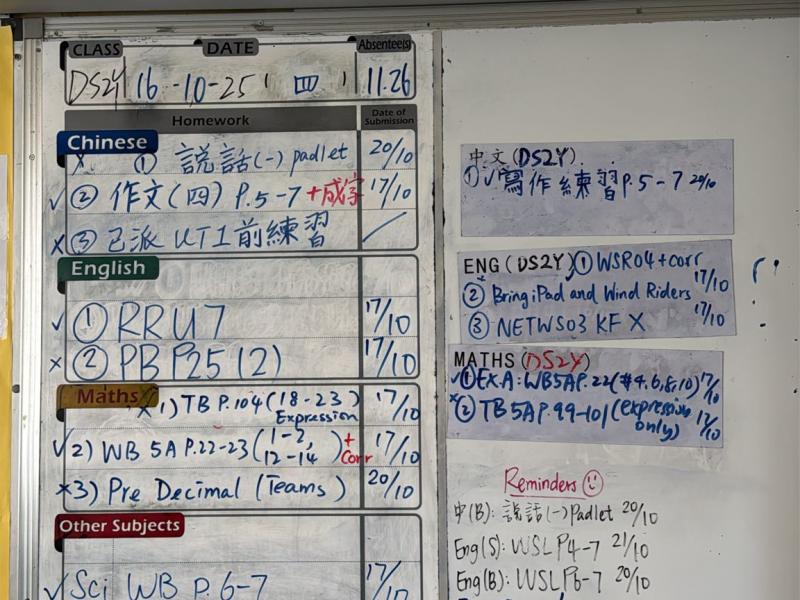 CLASS DATE Absentee(s)
DS2Y 16-10-25 (四) 11.26
Homework Date of Submission
Chinese
x ① 説話(一) padlet 20/10
✓② 作文(四) P.5-7 +成字 17/10
x③ 已派 UT1前練習 ✓
English
✓① RRU7 17/10
x② PB P25(2) 17/10
Maths
x 1) TB P.104 (18-23) Expression 17/10
✓2) WB 5A P.22-23 (1-2, 12-14) + Corr 17/10
x3) Pre Decimal (Teams) 20/10
Other Subjects
✓Sci WB P.6-7 17/10
中文(DS2Y)
①✓寫作練習P.5-7 20/10
ENG (DS2Y) ✓① WSR04+corr 17/10
② Bring iPad and Wind Riders 17/10
③ NETWS03 KF X
MATHS (DS2Y)
✓① EX.A: WB5AP.22(#4,6,8,10) 17/10
x② TB 5A P.99-101 (expression only) 17/10
Reminders
中(B): 説話(一) Padlet 20/10
Eng(S): WSL P4-7 21/10
Eng(B): WSL P6-7 20/10